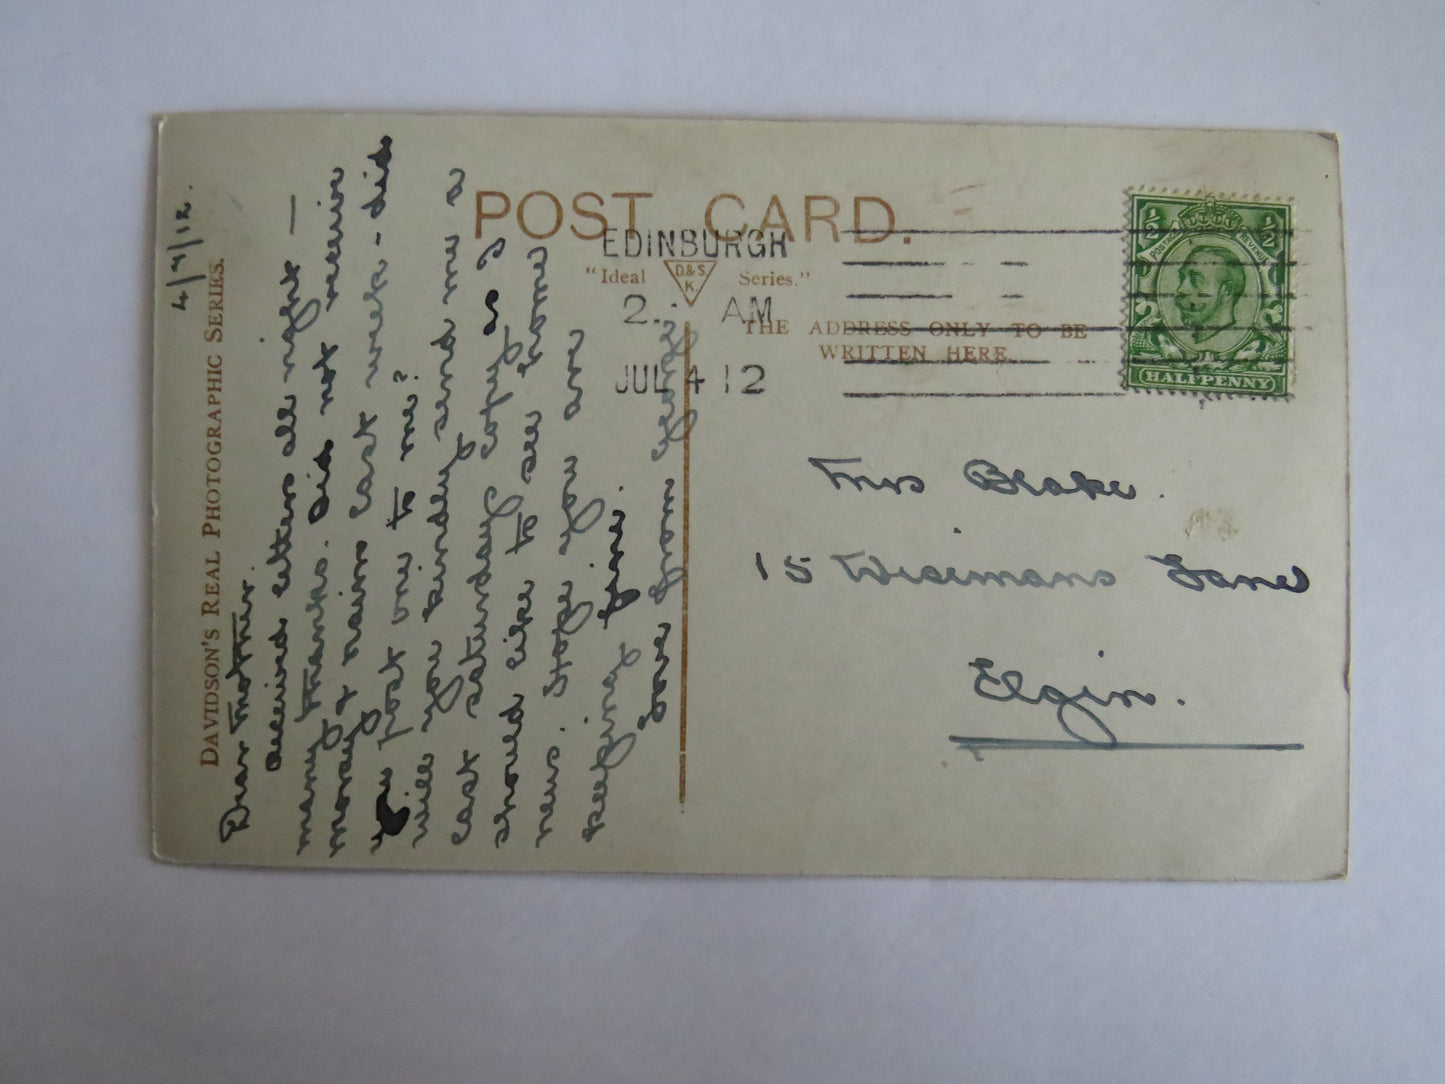 DAVIDSON'S REAL PHOTOGRAPHIC SERIES.
4/7/12.
Dear Mother.
received letters all right —
many thanks. Did not receive
money & nairn last week - did
you post one to me?
will you kindly send me a
last saturdays copy as I
should like to see home
news. Hope you are
keeping fine.
Love from George
POST CARD.
EDINBURGH
"Ideal D.& S. K. Series."
2 AM
JUL 4 12
THE ADDRESS ONLY TO BE
WRITTEN HERE.
½ ½
POSTAGE REVENUE
HALFPENNY
Mrs Blake.
15 Wisemans Lane
Elgin.